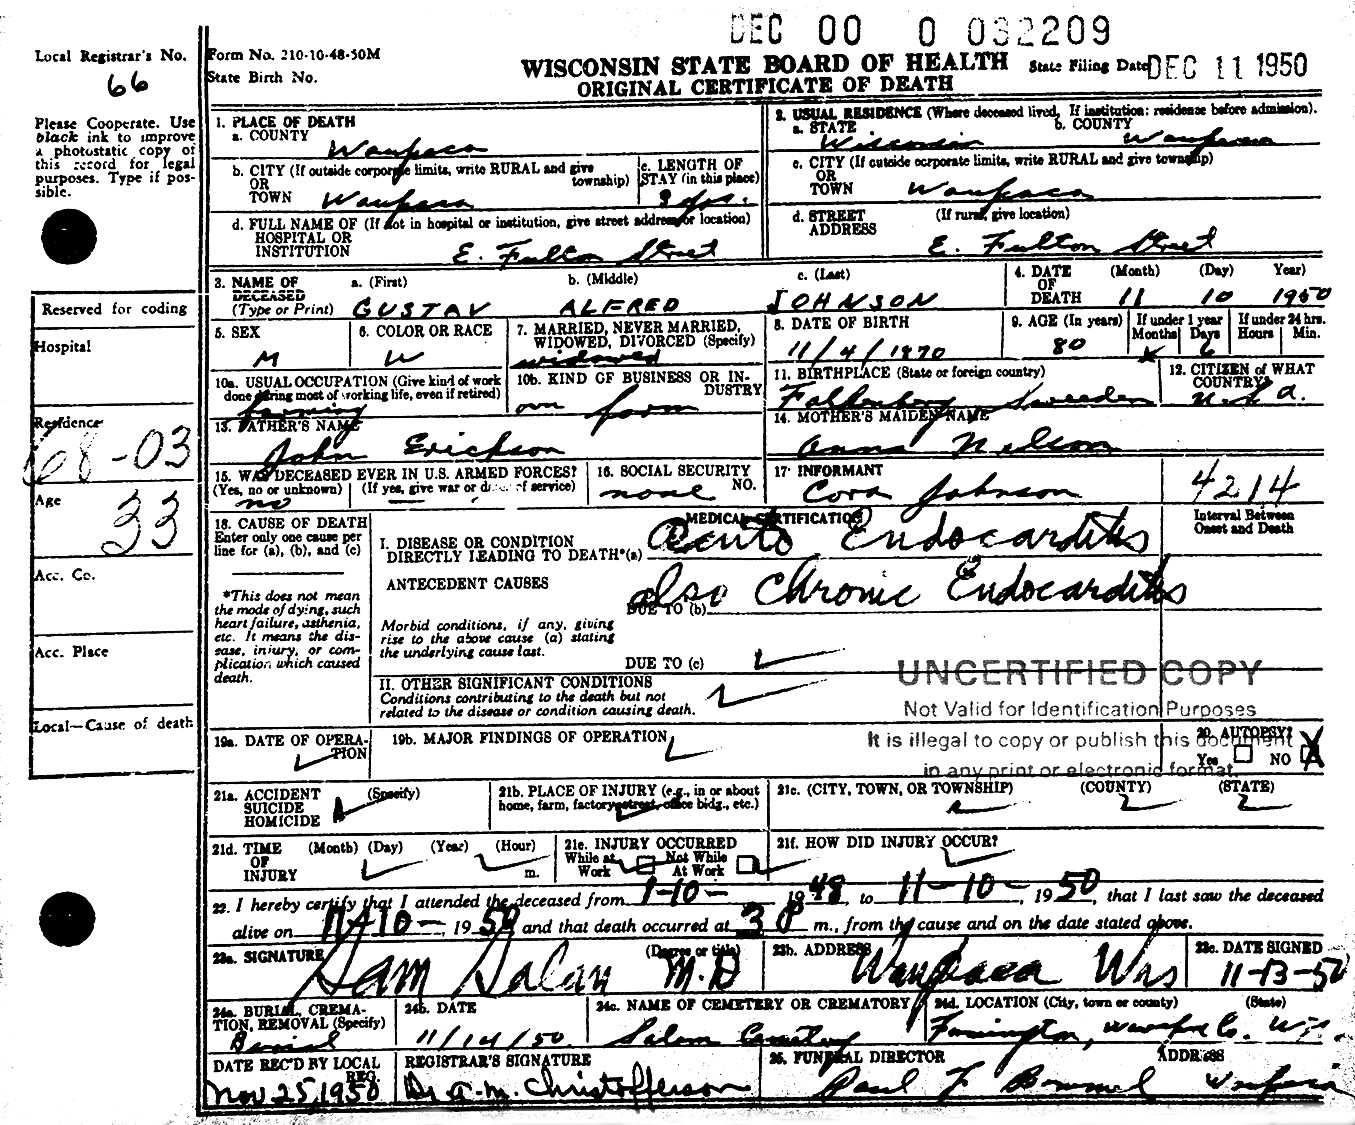 DEC 00 0 032209
Local Registrar's No.
66
Form No. 210-10-48-50M
State Birth No.
WISCONSIN STATE BOARD OF HEALTH
ORIGINAL CERTIFICATE OF DEATH
State Filing Date DEC 11 1950
Please Cooperate. Use
black ink to improve
a photostatic copy of
this record for legal
purposes. Type if pos-
sible.
1. PLACE OF DEATH
a. COUNTY
Waupaca
b. CITY (If outside corporate limits, write RURAL and give
OR township)
TOWN Waupaca
c. LENGTH OF
STAY (in this place)
yrs.
d. FULL NAME OF (If not in hospital or institution, give street address or location)
HOSPITAL OR
INSTITUTION E. Fulton Street
2. USUAL RESIDENCE (Where deceased lived, If institution: residence before admission).
a. STATE b. COUNTY
Wisconsin Waupaca
c. CITY (If outside corporate limits, write RURAL and give township)
OR
TOWN Waupaca
d. STREET (If rural, give location)
ADDRESS E. Fulton Street
3. NAME OF a. (First) b. (Middle) c. (Last)
DECEASED
(Type or Print) GUSTAV ALFRED JOHNSON
4. DATE (Month) (Day) Year)
OF
DEATH 11 10 1950
5. SEX
M
6. COLOR OR RACE
W
7. MARRIED, NEVER MARRIED,
WIDOWED, DIVORCED (Specify)
widowed
8. DATE OF BIRTH
11/4/1870
9. AGE (In years)
80
If under 1 year
Months Days
6
If under 24 hrs.
Hours Min.
10a. USUAL OCCUPATION (Give kind of work
done during most of working life, even if retired)
farming
10b. KIND OF BUSINESS OR IN-
DUSTRY
own farm
11. BIRTHPLACE (State or foreign country)
Falkenberg Sweeden
12. CITIZEN of WHAT
COUNTRY?
U.S.A.
13. FATHER'S NAME
John Erickson
14. MOTHER'S MAIDEN NAME
Anna Nelson
15. WAS DECEASED EVER IN U.S. ARMED FORCES?
(Yes, no or unknown) (If yes, give war or dates of service)
no
16. SOCIAL SECURITY
NO.
none
17. INFORMANT
Cora Johnson
4214
Reserved for coding
Hospital
Residence
68-03
Age
33
Acc. Co.
Acc. Place
Local—Cause of death
18. CAUSE OF DEATH
Enter only one cause per
line for (a), (b), and (c)
*This does not mean
the mode of dying, such
heart failure, asthenia,
etc. It means the dis-
ease, injury, or com-
plication which caused
death.
MEDICAL CERTIFICATION
Interval Between
Onset and Death
I. DISEASE OR CONDITION
DIRECTLY LEADING TO DEATH*(a) Acute Endocarditis
ANTECEDENT CAUSES
DUE TO (b) also Chronic Endocarditis
Morbid conditions, if any, giving
rise to the above cause (a) stating
the underlying cause last.
DUE TO (c)
II. OTHER SIGNIFICANT CONDITIONS
Conditions contributing to the death but not
related to the disease or condition causing death.
UNCERTIFIED COPY
Not Valid for Identification Purposes
It is illegal to copy or publish this document
in any print or electronic format.
19a. DATE OF OPERA-
TION
19b. MAJOR FINDINGS OF OPERATION
20. AUTOPSY?
Yes NO X
21a. ACCIDENT (Specify)
SUICIDE
HOMICIDE
21b. PLACE OF INJURY (e.g., in or about
home, farm, factory, street, office bldg., etc.)
21c. (CITY, TOWN, OR TOWNSHIP) (COUNTY) (STATE)
21d. TIME (Month) (Day) (Year) (Hour)
OF
INJURY m.
21e. INJURY OCCURRED
While at Not While
Work At Work
21f. HOW DID INJURY OCCUR?
22. I hereby certify that I attended the deceased from 1-10-, 1948, to 11-10-, 1950, that I last saw the deceased
alive on 11-10-, 1950 and that death occurred at 3 P m., from the cause and on the date stated above.
23a. SIGNATURE (Degree or title)
Sam Salan M.D
23b. ADDRESS
Waupaca Wis
23c. DATE SIGNED
11-13-50
24a. BURIAL, CREMA-
TION, REMOVAL (Specify)
Burial
24b. DATE
11/14/50
24c. NAME OF CEMETERY OR CREMATORY
Salem Cemetery
24d. LOCATION (City, town or county) (State)
Farmington, Waupaca Co. Wis.
DATE REC'D BY LOCAL
REG.
Nov 25, 1950
REGISTRAR'S SIGNATURE
Dr A.M. Christofferson
25. FUNERAL DIRECTOR ADDRESS
Paul F Bammel Waupaca